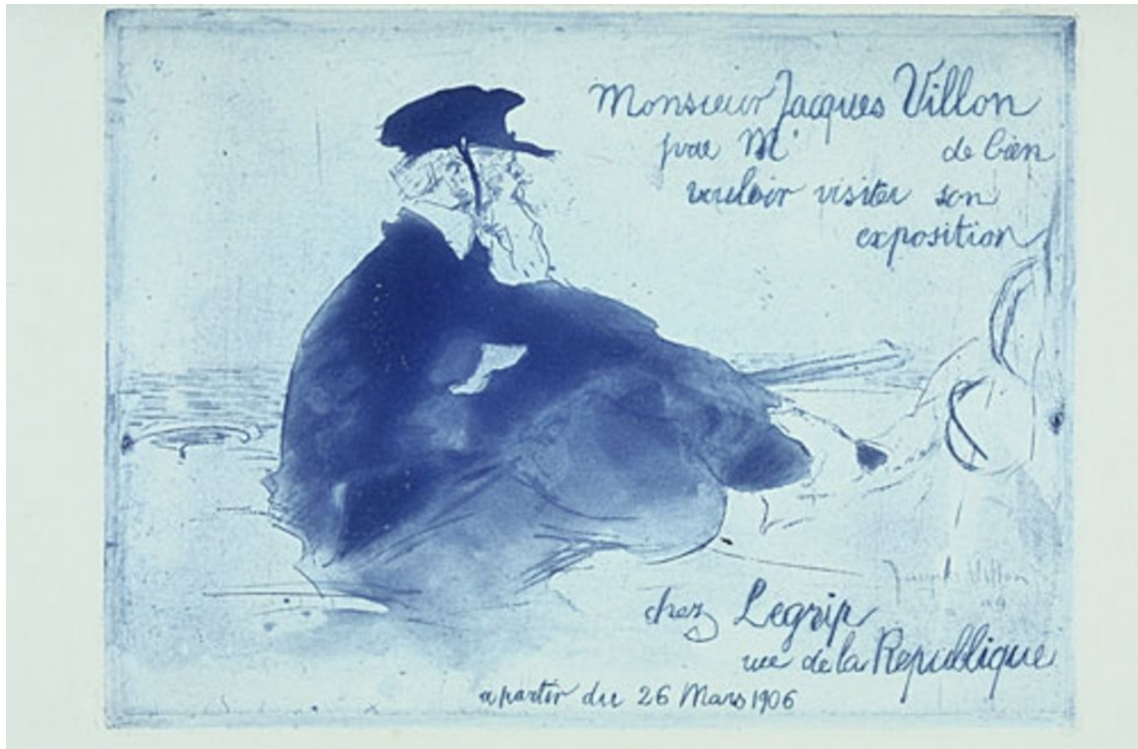 Monsieur Jacques Villon
prie M^r de bien
vouloir visiter son
exposition
Jacques Villon
chez Legrip
rue de la Republique
a partir du 26 Mars 1906